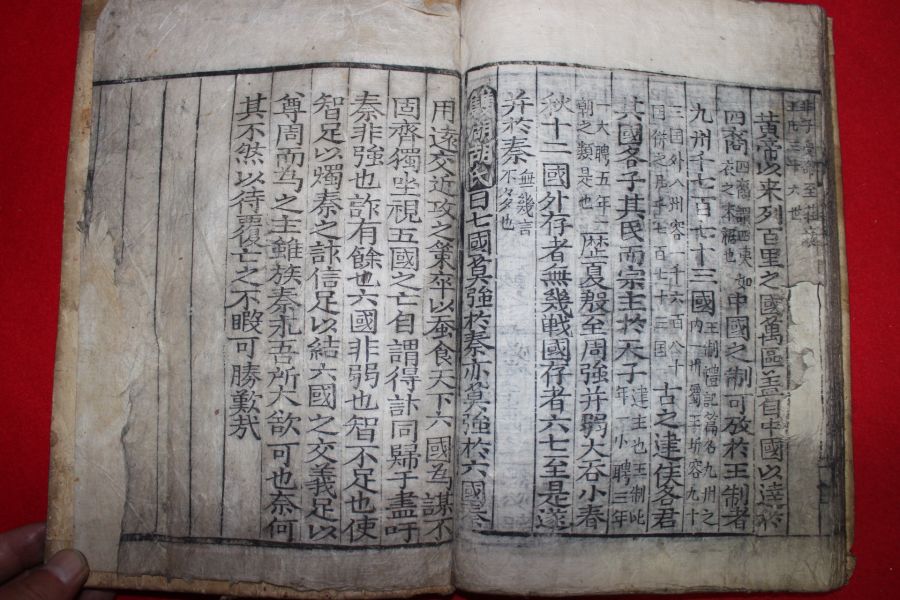 凡三十六世
黃帝以来列百里之國萬區盖自中國以達於
四裔四裔謂四夷如衣之末裾也中國之制可放於王制者
九州千七百七十三國王制禮記篇名九州之内一圻容九十
三国外八州容一千六百八十国併之爲千七百七十三国古之建侯各君
其國各子其民而宗主於天子建主也王制比年小聘三年
一大聘五年朝之類是也歷夏殷至周強并弱大吞小春
秋十二國外存者無幾戰國存者六七至是遂
并於秦無幾言不多也
雙湖胡氏曰七國莫強於秦亦莫強於六國秦
用遠交近攻之策卒以蚕食天下六國爲謀不
固齊獨坐視五國之亡自謂得計同歸于盡吁
秦非強也詐有餘也六國非弱也智不足也使
智足以燭秦之詐信足以結六國之交義足以
尊周而為之主雖族秦永吾所大欲可也奈何
其不然以待覆亡之不暇可勝歎㢤